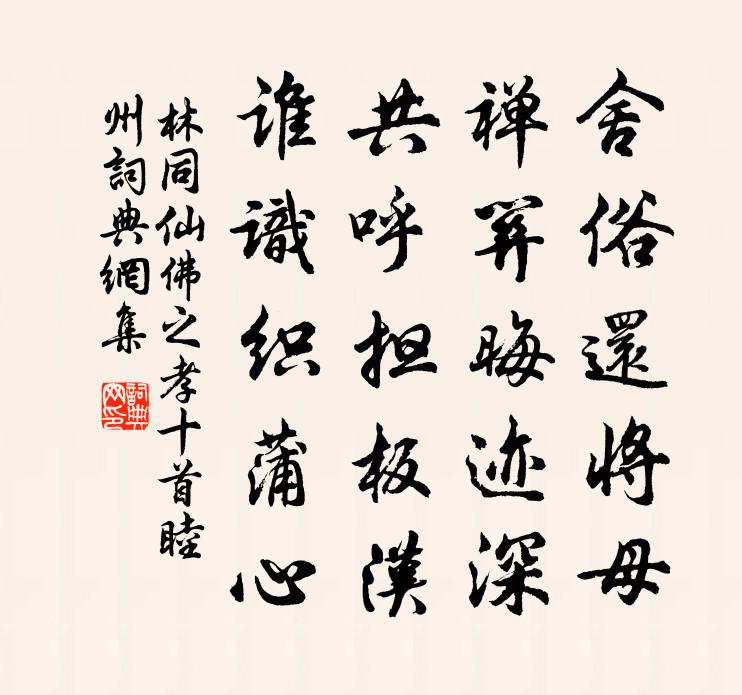 舍俗還將母
禅関晦迹深
共呼担板漢
谁識织蒲心
林同仙佛之孝十首睦
州詞典網集
詞典網印